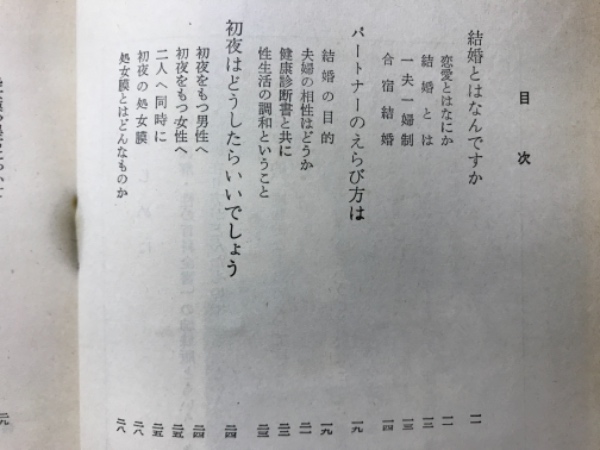 目次
結婚とはなんですか 一一
恋愛とはなにか 一一
結婚とは 一二
一夫一婦制 一三
合宿結婚 一四
パートナーのえらび方は 一九
結婚の目的 一九
夫婦の相性はどうか 二一
健康診断書と共に 二二
性生活の調和ということ 二三
初夜はどうしたらいいでしょう 二四
初夜をもつ男性へ 二四
初夜をもつ女性へ 二五
二人へ同時に 二五
初夜の処女膜 二八
処女膜とはどんなものか 二八
二九